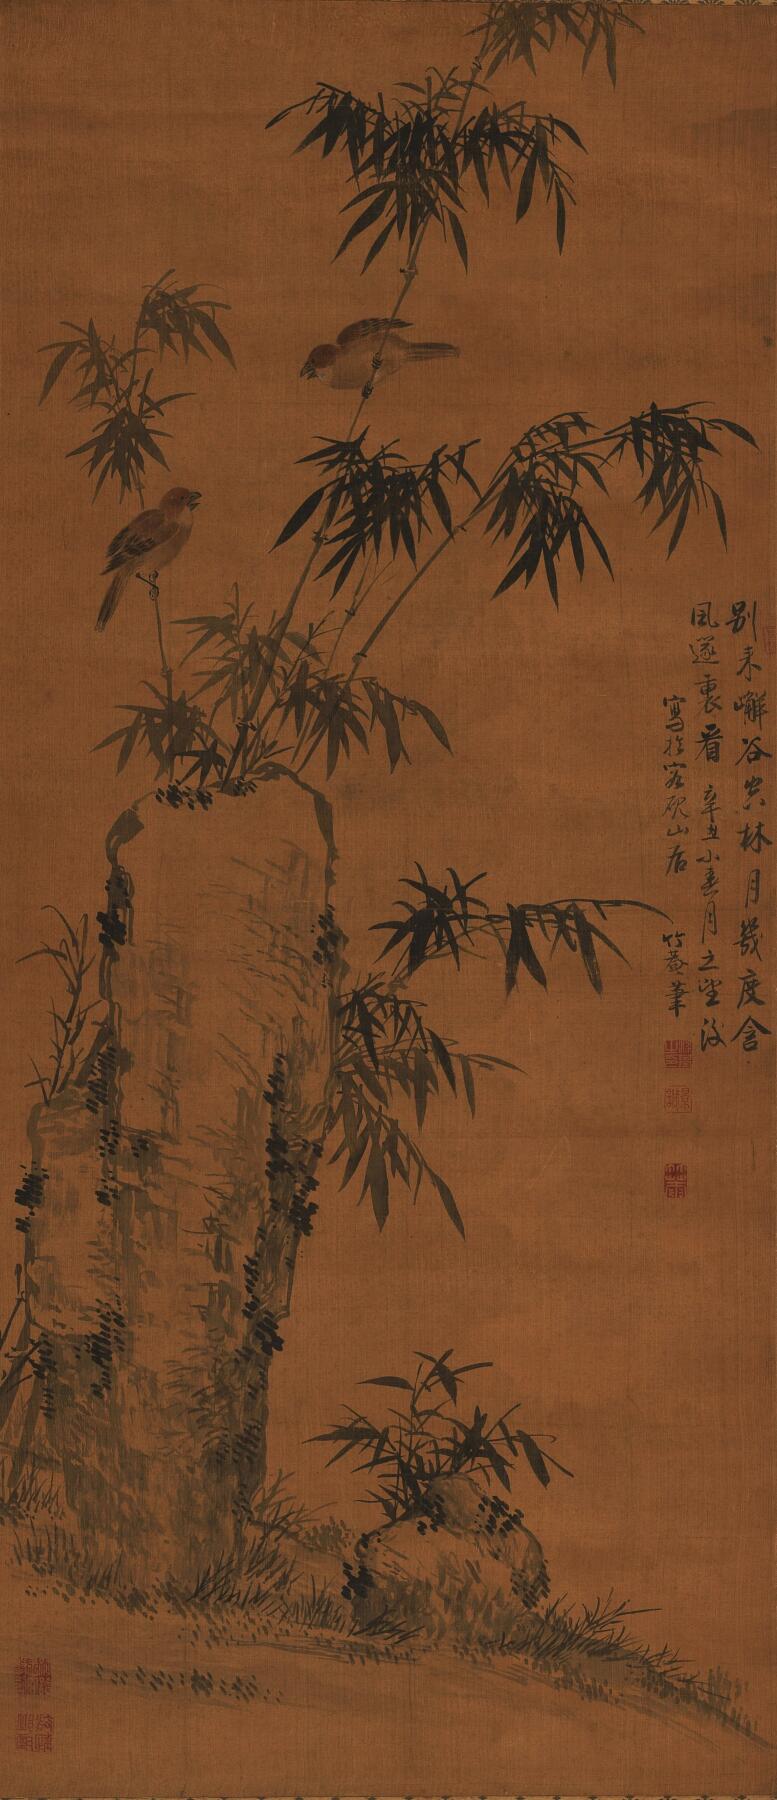 別来嶰谷空林月幾度含
風遶裏看 辛丑小春月之望後
寫於容硯山居 竹菴筆